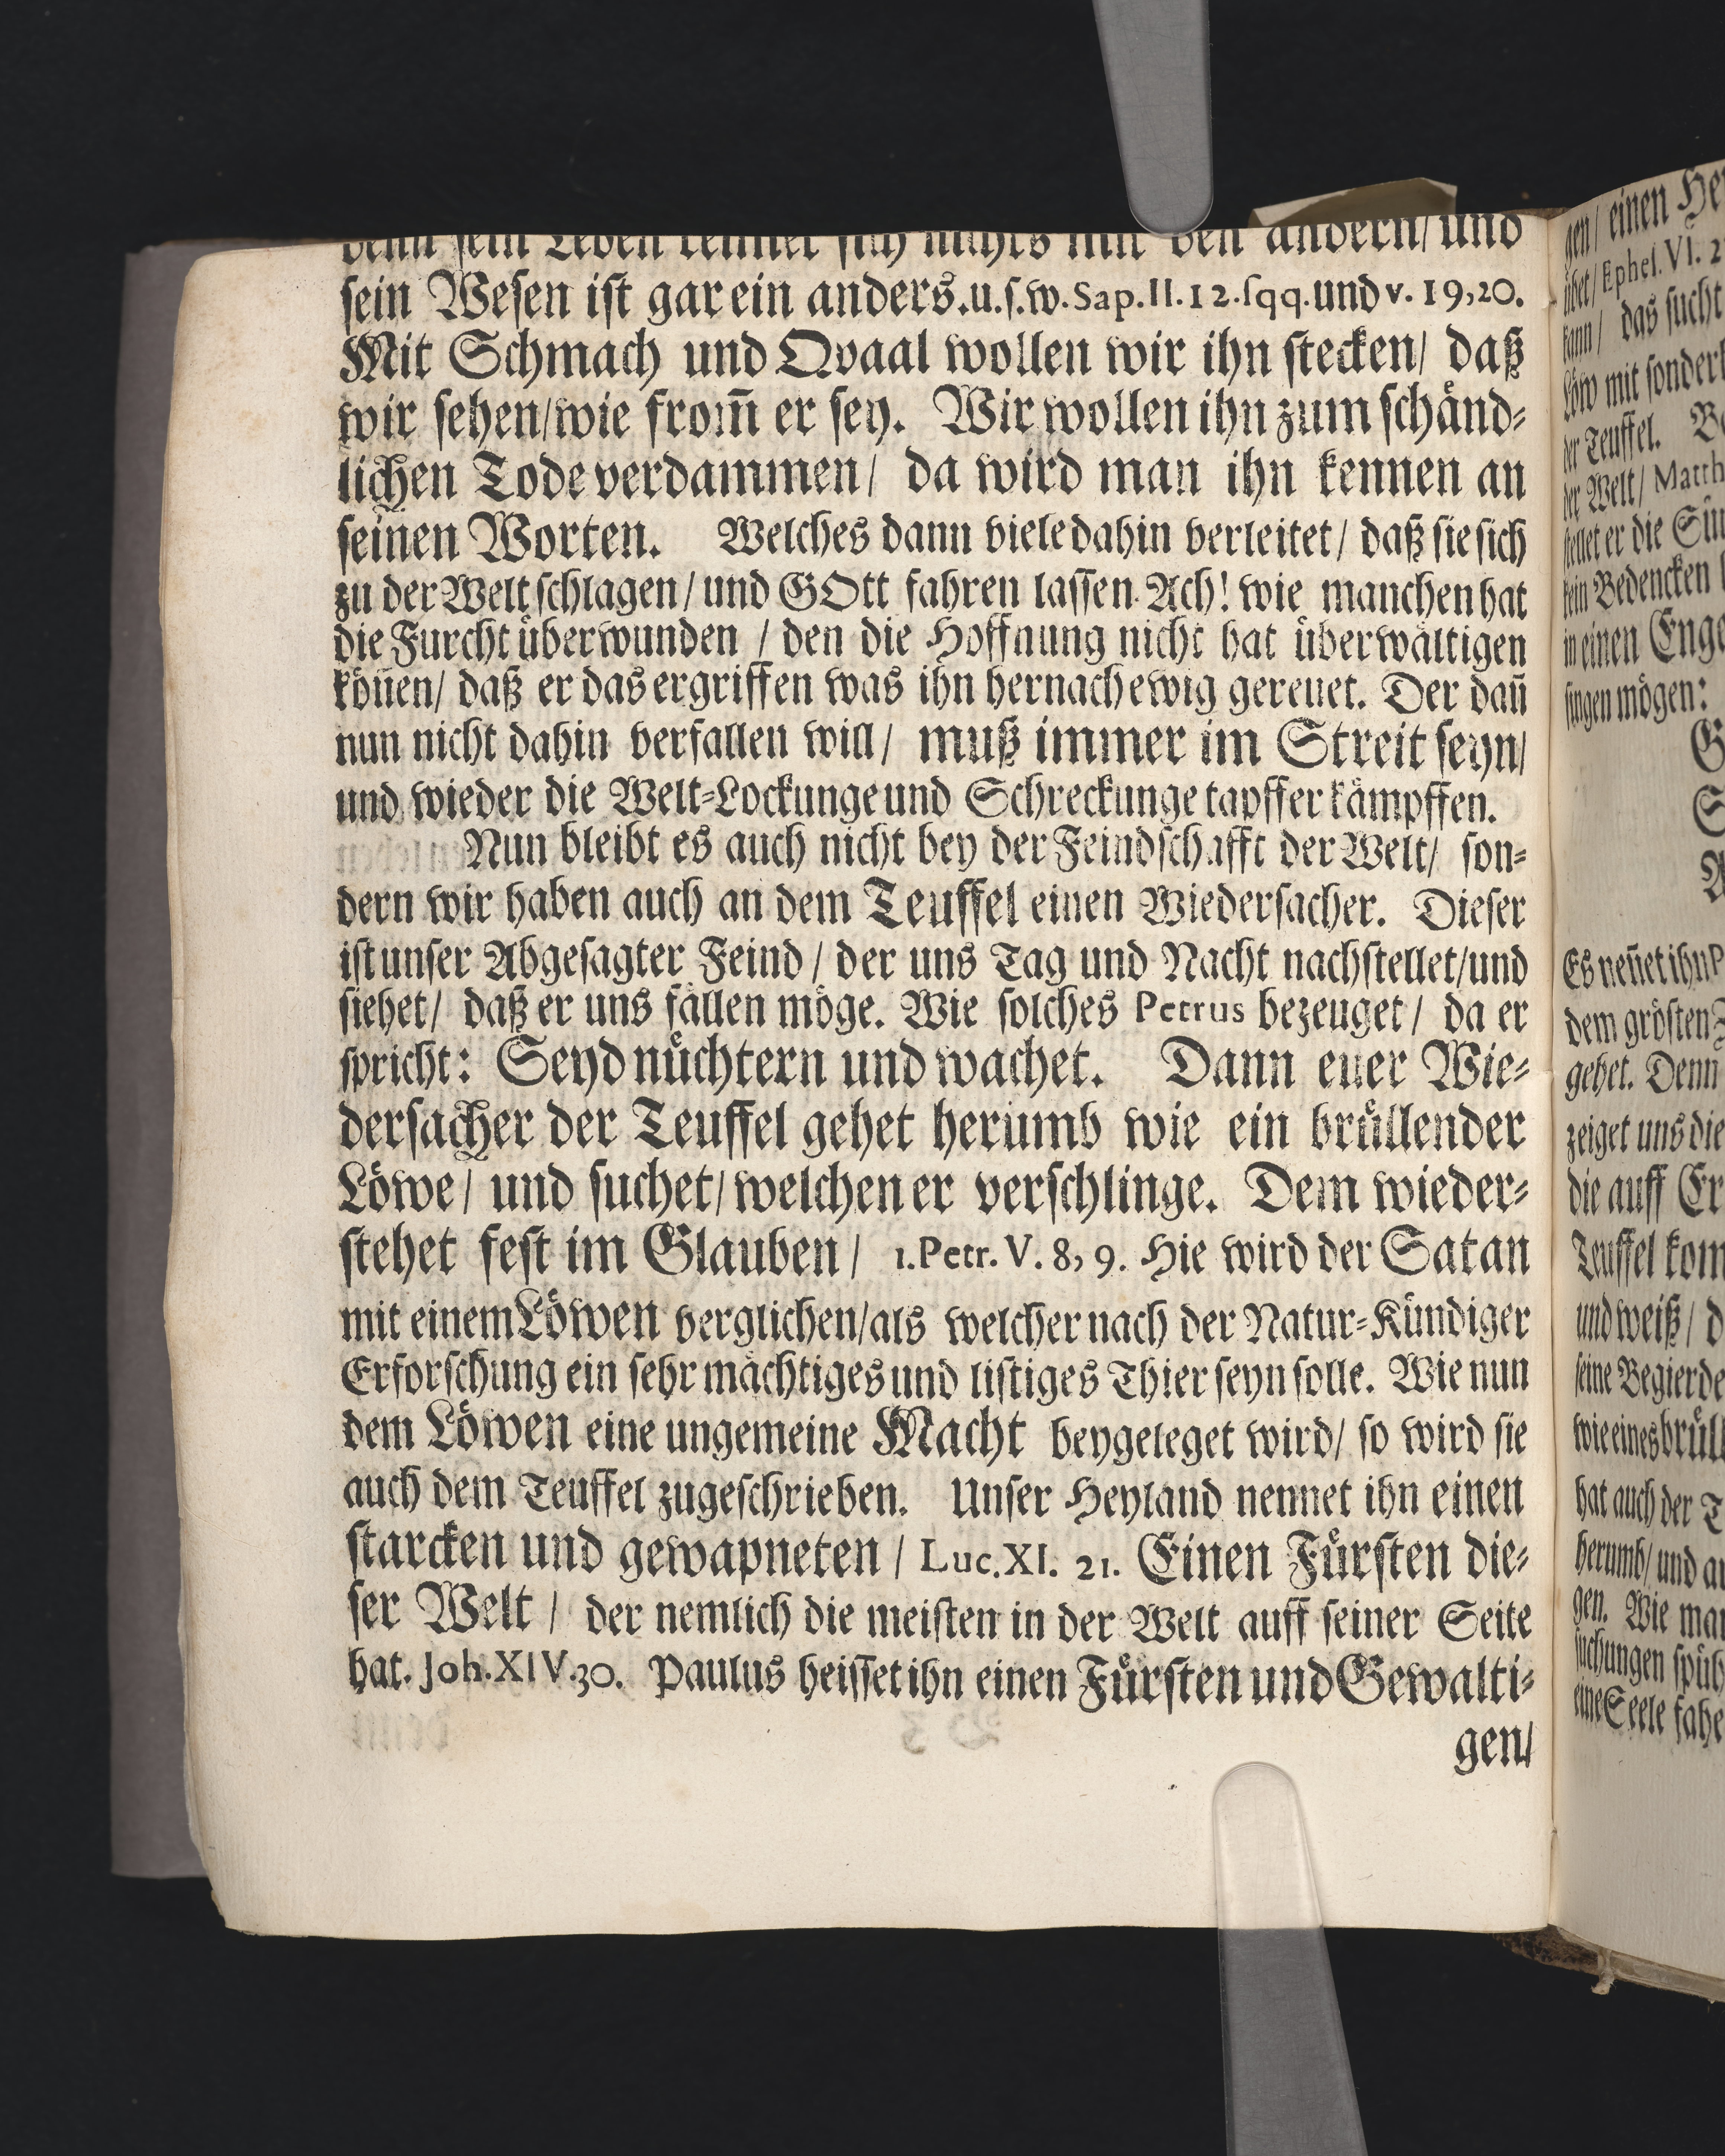 denn sein Leben reimet sich nichts mit den andern/ und
sein Wesen ist gar ein anders.u.s.w. Sap. II. 12. sqq. und v. 19, 20.
Mit Schmach und Qvaal wollen wir ihn stecken/ daß
wir sehen/wie from̃ er sey. Wir wollen ihn zum schänd-
lichen Tode verdammen/ da wird man ihn kennen an
seinen Worten. Welches dann viele dahin verleitet/ daß sie sich
zu der Welt schlagen/ und GOtt fahren lassen. Ach! wie manchen hat
die Furcht überwunden / den die Hoffnung nicht hat überwältigen
kön̄en/ daß er das ergriffen was ihn hernach ewig gereuet. Der dan̄
nun nicht dahin verfallen will/ muß immer im Streit seyn/
und wieder die Welt-Lockunge und Schreckunge tapffer kämpffen.
Nun bleibt es auch nicht bey der Feindschafft der Welt/ son-
dern wir haben auch an dem Teuffel einen Wiedersacher. Dieser
ist unser Abgesagter Feind / der uns Tag und Nacht nachstellet/und
siehet/ daß er uns fällen möge. Wie solches Petrus bezeuget/ da er
spricht: Seyd nüchtern und wachet. Dann euer Wie-
dersacher der Teuffel gehet herumb wie ein brüllender
Löwe/ und suchet/ welchen er verschlinge. Dem wieder-
stehet fest im Glauben/ 1. Petr. V. 8, 9. Hie wird der Satan
mit einem Löwen verglichen/als welcher nach der Natur-Kündiger
Erforschung ein sehr mächtiges und listiges Thier seyn solle. Wie nun
dem Löwen eine ungemeine Macht beygeleget wird/ so wird sie
auch dem Teuffel zugeschrieben. Unser Heyland nennet ihn einen
starcken und gewapneten / Luc. XI. 21. Einen Fürsten die-
ser Welt / der nemlich die meisten in der Welt auff seiner Seite
hat. Joh. XIV. 30. Paulus heisset ihn einen Fürsten und Gewalti-
gen/
gen/ einen
übet/ Ephes. VI.
kann/ das sucht
Löw mit
der Teuffel.
der Welt/ Matth
stellet er die
kein Bedencken
in einen
singen mögen:
Es nen̄et ihn
dem grösten
gehet. Denn
zeiget uns die
die auff
Teuffel
und weiß/
seine
wie eines
hat auch der
herumb/ und
gen. Wie
suchungen
eine Seele